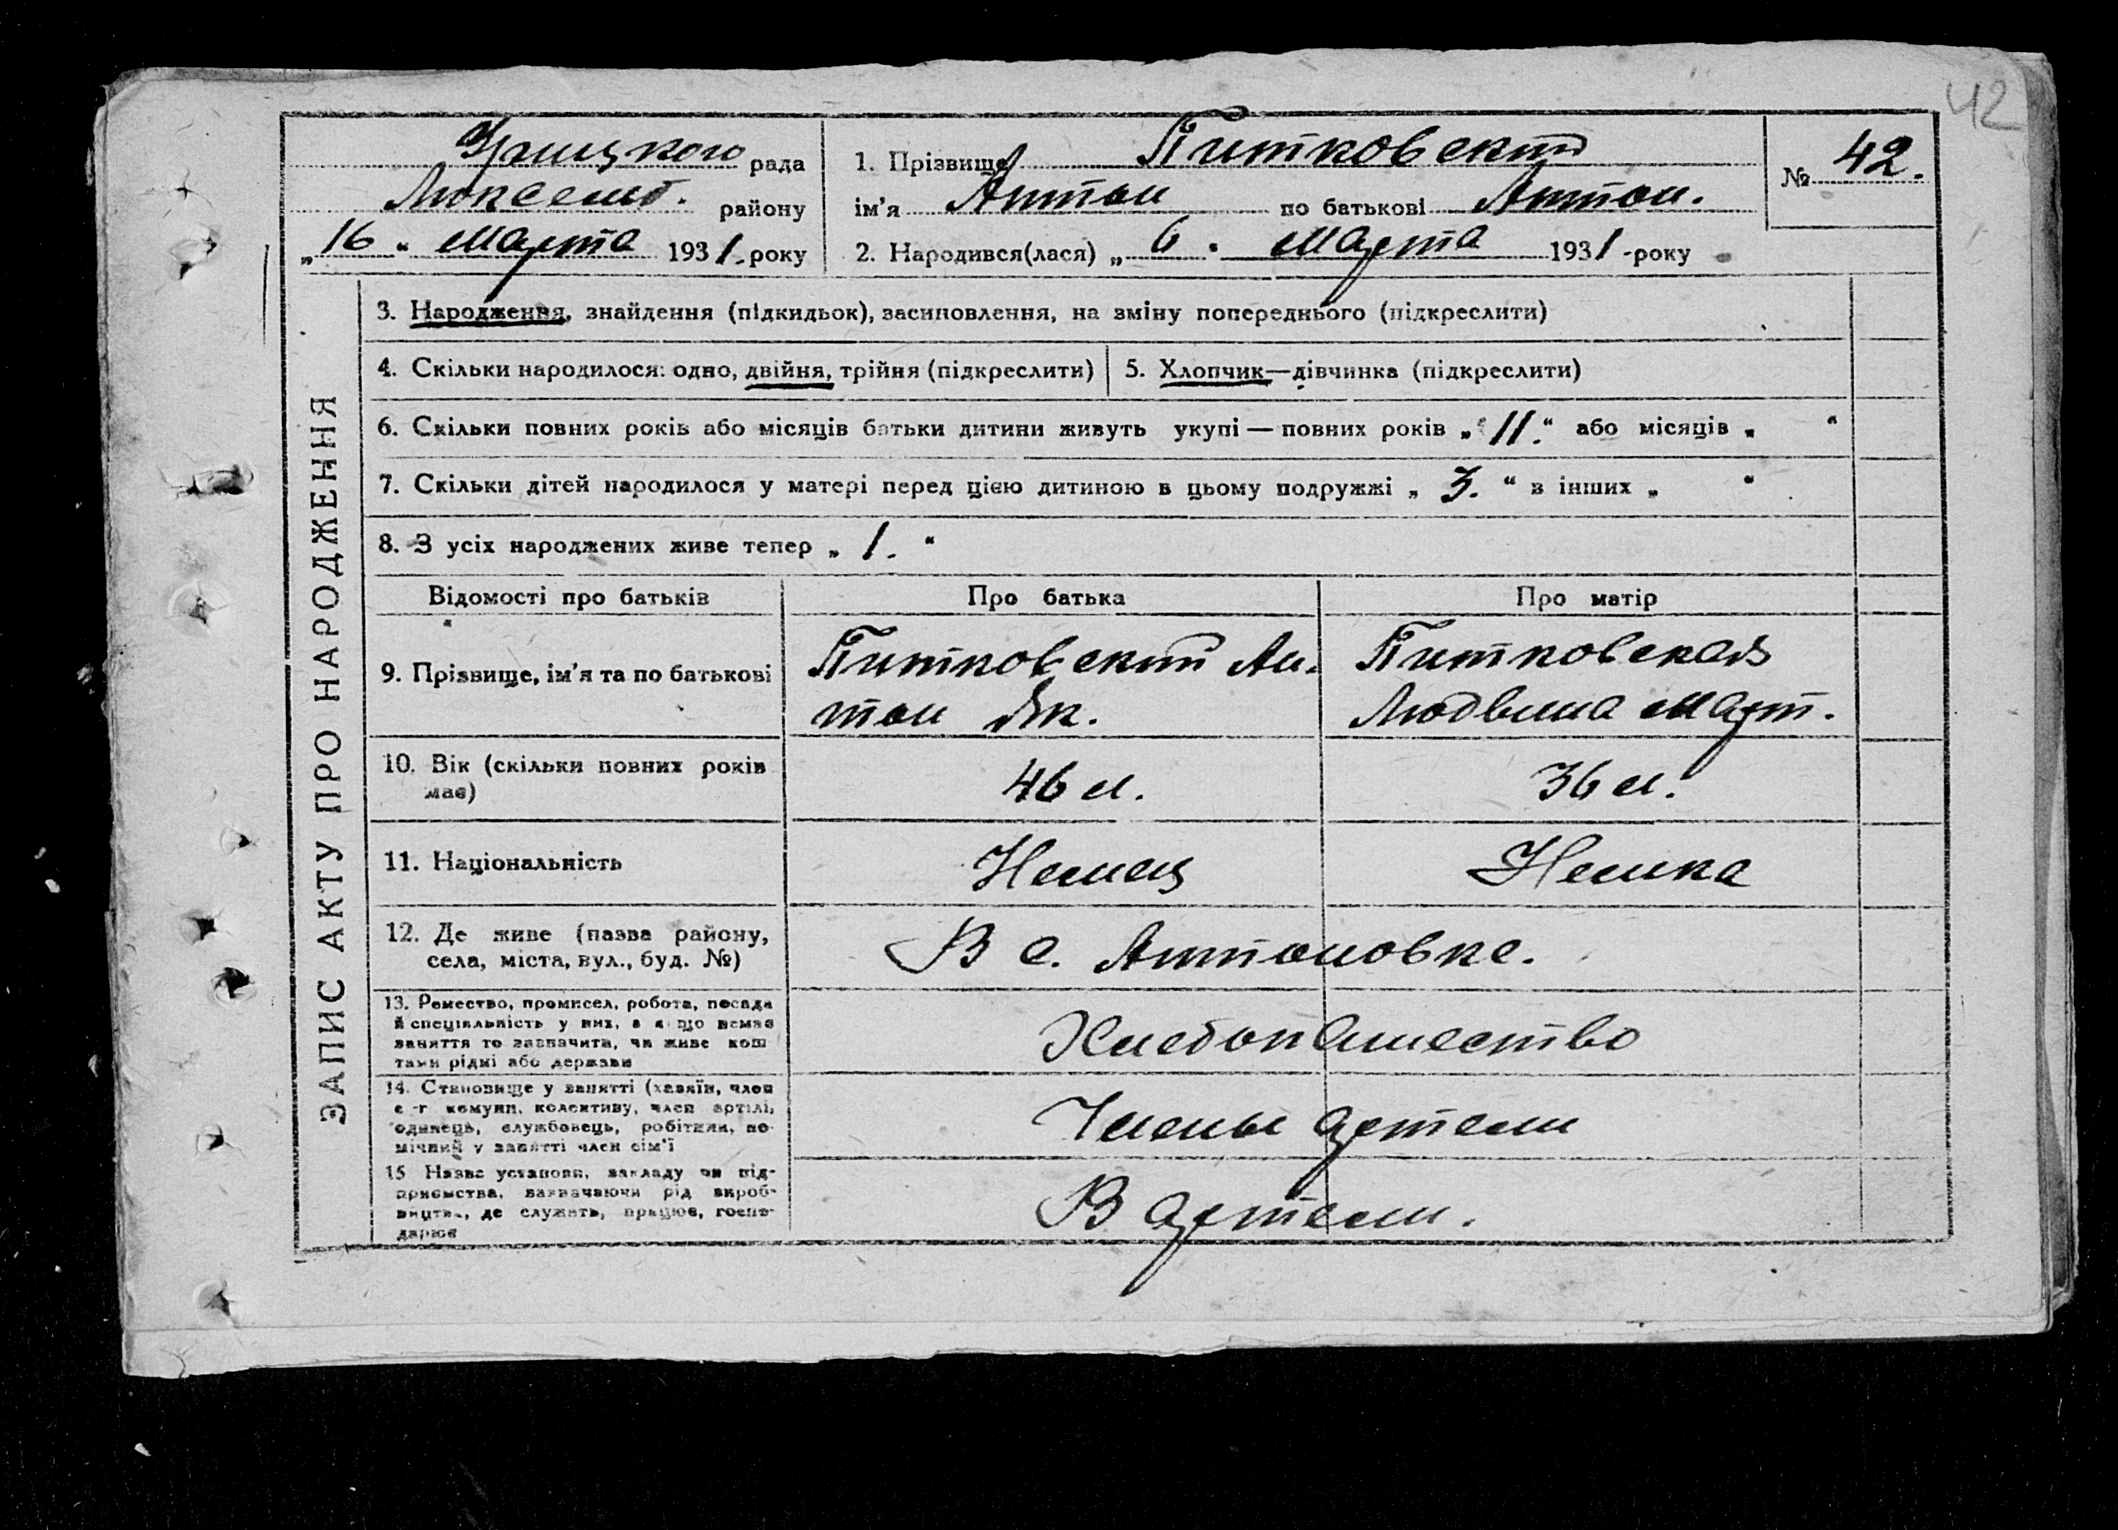 42
Урицкого рада
Люксемб. району
„16“ Марта 1931. року
1. Прізвище Питковский
ім'я Антон по батькові Антон.
2. Народився(лася) „6“ Марта 1931-року
№ 42.
ЗАПИС АКТУ ПРО НАРОДЖЕННЯ
3. Народження, знайдення (підкидьок), засиновлення, на зміну попереднього (підкреслити)
4. Скільки народилося: одно, двійня, трійня (підкреслити)
5. Хлопчик—дівчинка (підкреслити)
6. Скільки повних років або місяців батьки дитини живуть укупі — повних років „11.“ або місяців „ “
7. Скільки дітей народилося у матері перед цією дитиною в цьому подружжі „3.“ в інших „ “
8. З усіх народжених живе тепер „1.“
Відомості про батьків
Про батька
Про матір
9. Прізвище, ім'я та по батькові
Питковский Ан-
тон Як.
Питковская
Людвина Март.
10. Вік (скільки повних років
має)
46 л.
36 л.
11. Національність
Немец
Немка
12. Де живе (назва району,
села, міста, вул., буд. №)
В с. Антоновке.
13. Ремество, промисел, робота, посада
й спеціяльність у них, а якщо немає
заняття то зазначити, чи живе кош
тами рідні або держави
Хлебопашество
14. Становище у занятті (хазяїн, член
с-г комуни, колективу, член артілі,
одинець, службовець, робітник, по-
мічний у занятті член сім'ї
Члены артели
15 Назва установи, закладу чи під-
приємства, зазначаючи рід вироб-
ництва, де служить, працює, госпо-
дарює
В артели.